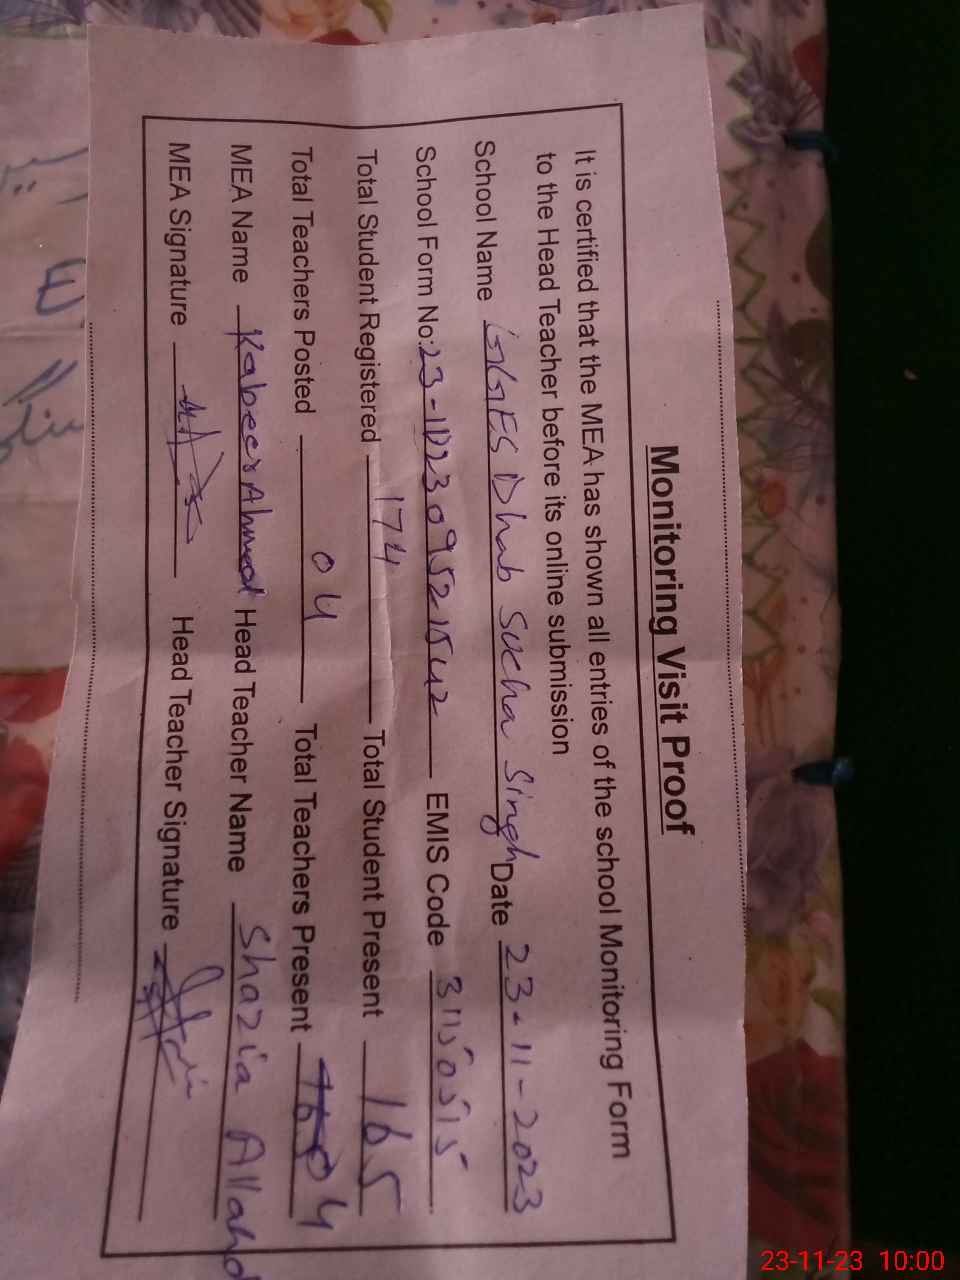 Monitoring Visit Proof
It is certified that the MEA has shown all entries of the school Monitoring Form
to the Head Teacher before its online submission
School Name GGES Dhab Sucha Singh Date 23-11-2023
School Form No: 23-11D2309521542 EMIS Code 31150515
Total Student Registered 174 Total Student Present 165
Total Teachers Posted 04 Total Teachers Present 04
MEA Name Kabeer Ahmad Head Teacher Name Shazia Allahd
MEA Signature Head Teacher Signature
23-11-23 10:00